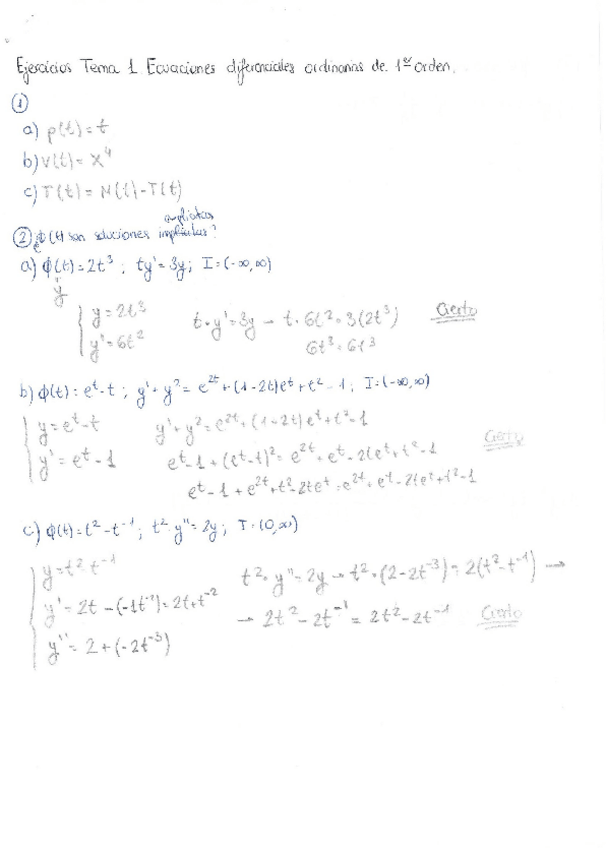 Ejercicios Tema 1. Ecuaciones diferenciales ordinarias de 1er orden.
①
a) p(t) = t
b) v(t) = x⁴
c) T(t) = M(t) - T(t)
explícitas
② ¿ϕ(t) son soluciones implícitas?
a) ϕ(t) = 2t³ ; ty' = 3y ; I = (-∞,∞)
y
y = 2t³
y' = 6t²
t·y' = 3y → t·6t² = 3(2t³)
6t³ = 6t³
Cierto
b) ϕ(t) = eᵗ - t ; y' + y² = e²ᵗ + (1-2t)eᵗ + t² - 1 ; I = (-∞,∞)
y = eᵗ - t
y' = eᵗ - 1
y' + y² = e²ᵗ + (1-2t)eᵗ + t² - 1
eᵗ - 1 + (eᵗ - t)² = e²ᵗ + eᵗ - 2teᵗ + t² - 1
eᵗ - 1 + e²ᵗ + t² - 2teᵗ = e²ᵗ + eᵗ - 2teᵗ + t² - 1
Cierto
c) ϕ(t) = t² - t⁻¹ ; t²·y'' = 2y ; I = (0,∞)
y = t² - t⁻¹
y' = 2t - (-1t⁻²) = 2t + t⁻²
y'' = 2 + (-2t⁻³)
t²·y'' = 2y → t²·(2 - 2t⁻³) = 2(t² - t⁻¹) →
→ 2t² - 2t⁻¹ = 2t² - 2t⁻¹
Cierto